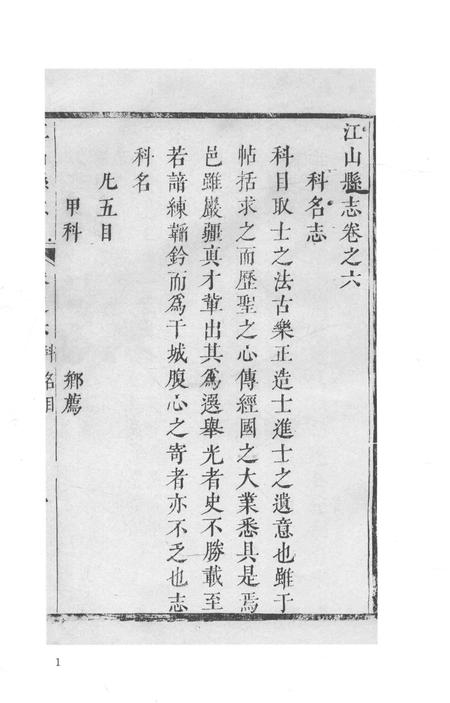 江山縣志卷之六
科名志
科目取士之法古樂正造士進士之遺意也雖于
帖括求之而歷聖之心傳經國之大業悉具是焉
邑雖巖疆真才輩出其為選舉光者史不勝載至
若諳練韜鈐而為干城腹心之寄者亦不乏也志
科名
凡五目
甲科 鄉薦
科名目
1